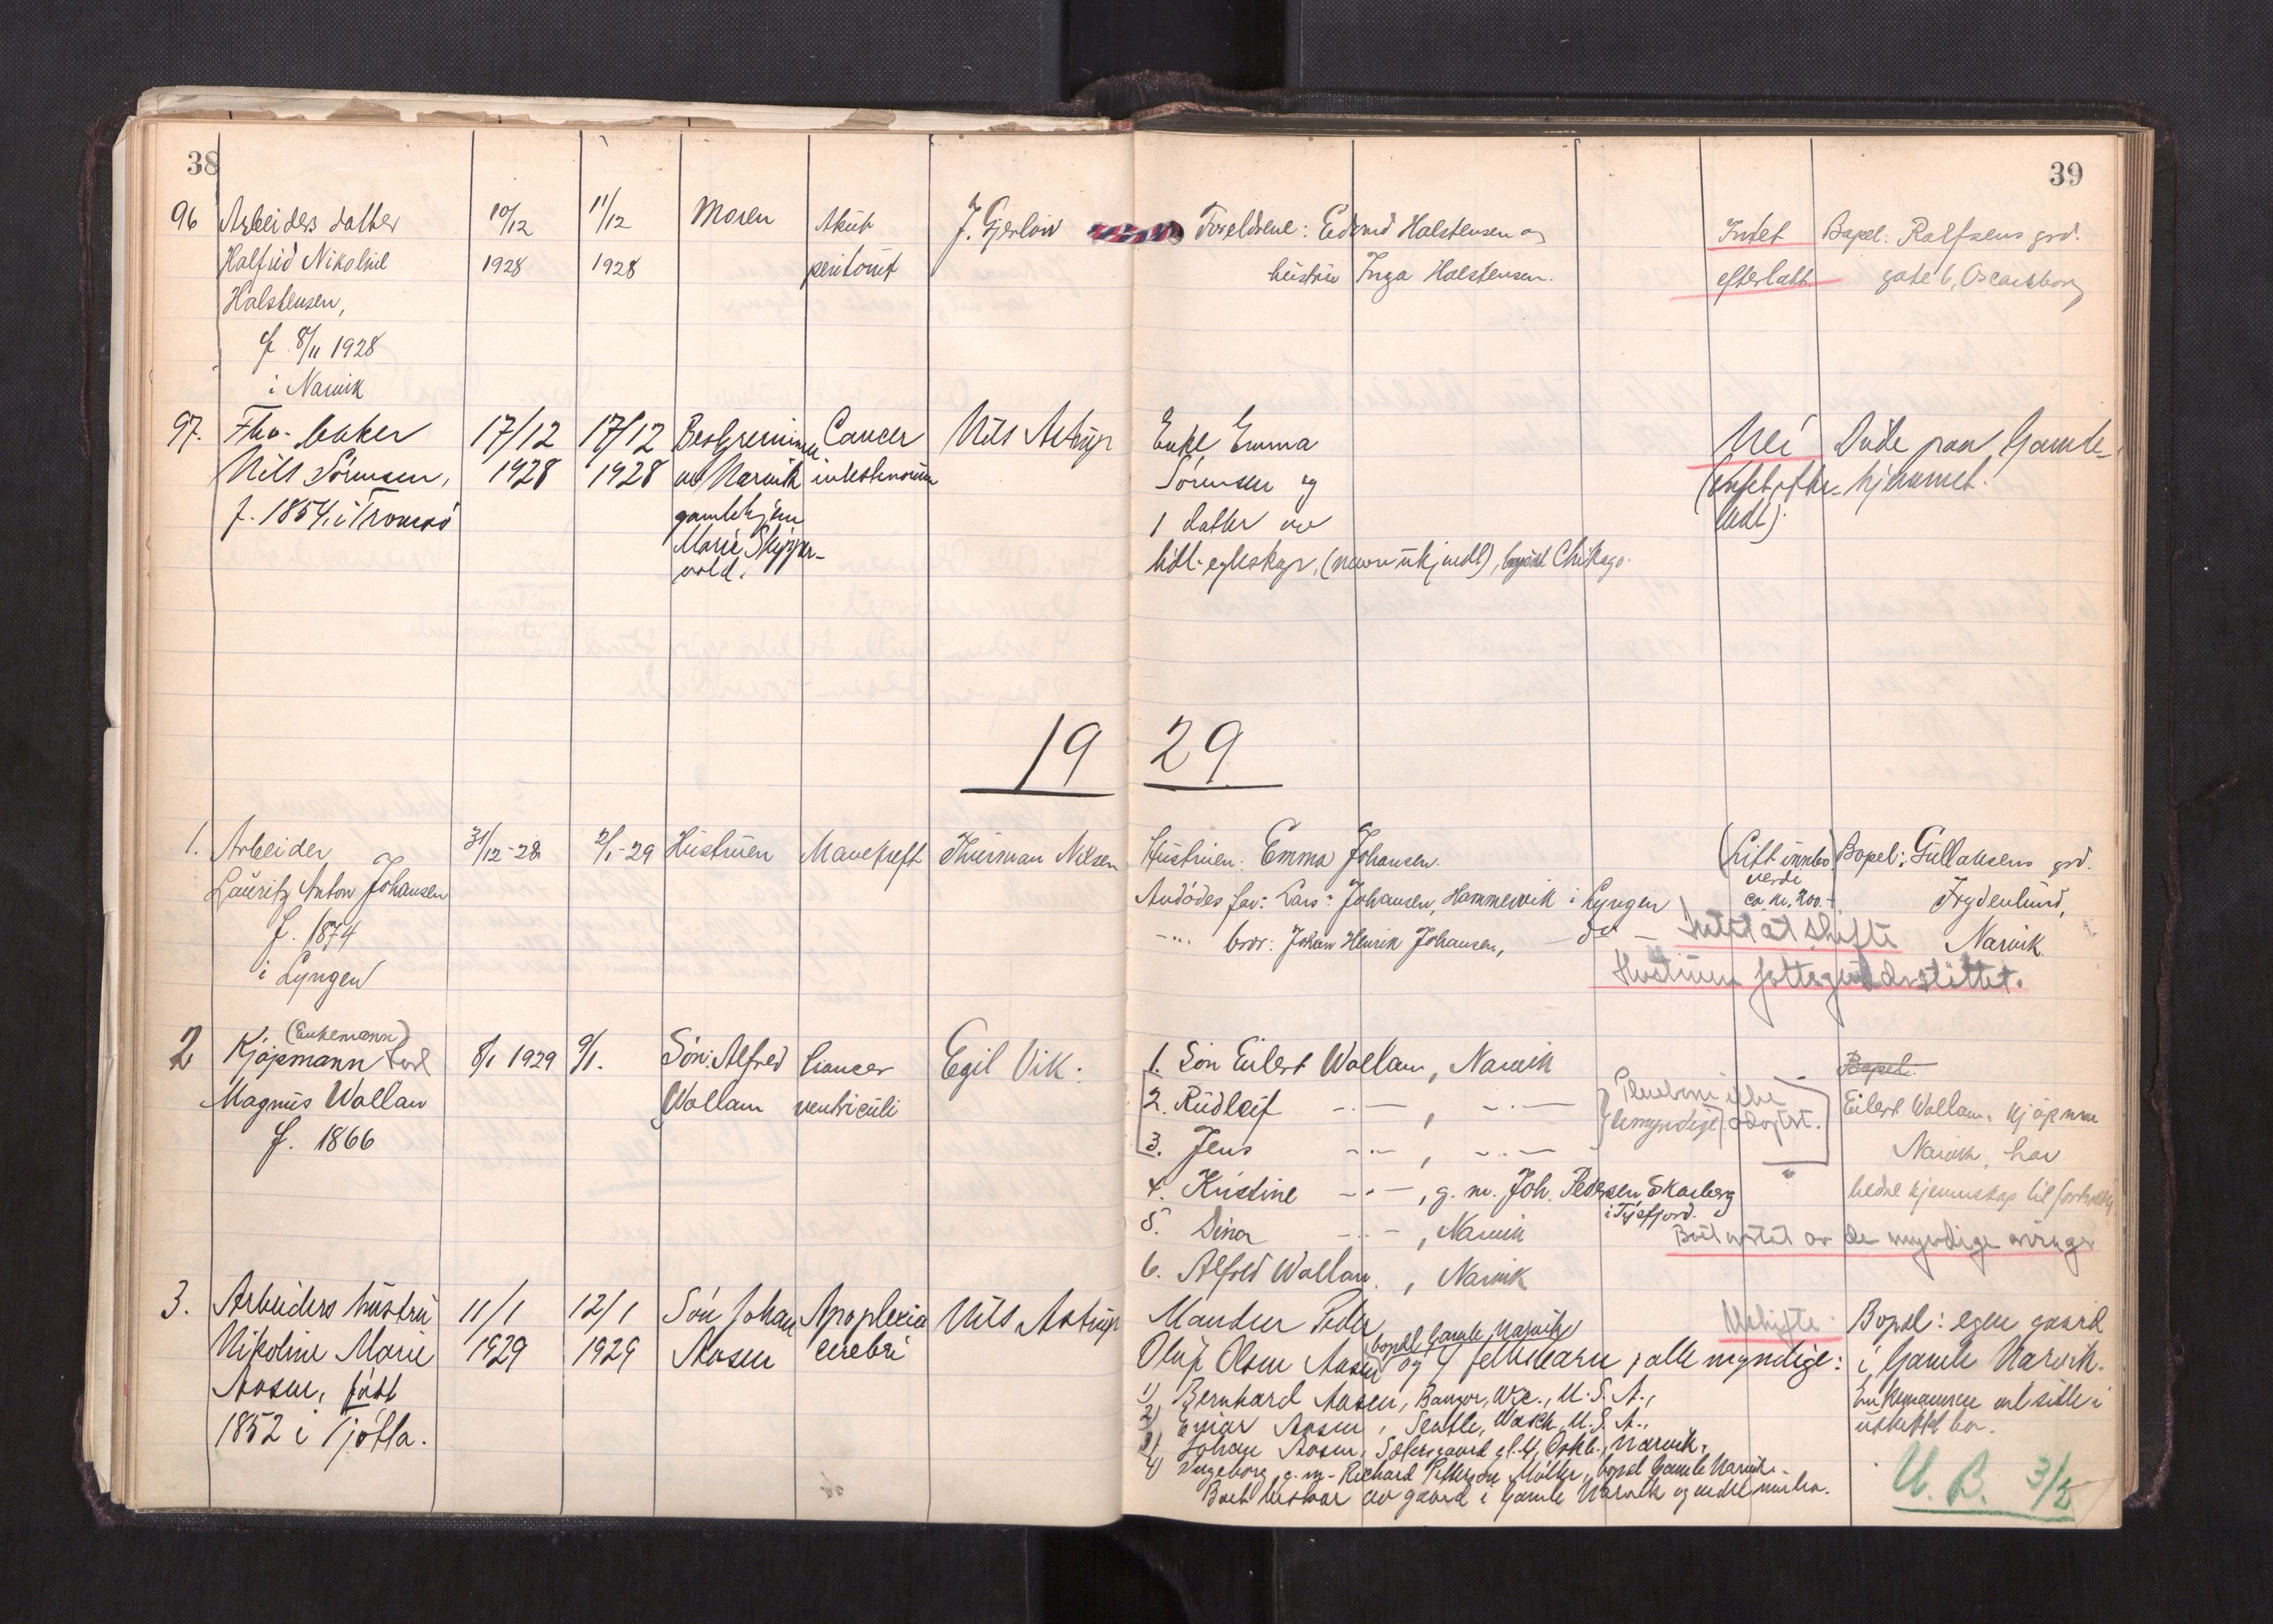 38
39
96 Arbeiders datter 10/12 11/12 Moren Akut J. Gjerlöw Foreldrene: Edvard Halstensen og Intet Bopel: Rolfsens grd.
Halfrid Nikoline 1928 1928 peritonit hustru Inga Halstensen. efterlatt. gate 6, Oscarsborg
Halstensen,
f. 8/11 1928
i Narvik
97. Fhv. baker 17/12 17/12 Bestyrerinne Cancer Nils Astrup Enke Emma Nei Döde paa Gamle-
Nils Sörensen, 1928 1928 av Narvik intestinorum Sörensen og (intet efter- hjemmet.
f. 1854 i Tromsö gamlehjem 1 datter av latt).
Marie Skipper-
vold. tidl. egteskap, (navn ukjendt), bopæl Chikago.
19 29
1. Arbeider 31/12-28 2/1-29 Hustruen Mavekreft Thurman Nilsen Hustruen: Emma Johansen. (Litt innbo Bopel: Gullaksens grd.
verdi
Lauritz Anton Johansen Avdödes far: Lars Johansen, Hammervik i Lyngen ca. kr. 200.- Frydenlund,
f. 1874 -"- bror: Johan Henrik Johansen, - do - Intet at skifte Narvik.
i Lyngen Hustruen fattigunderstöttet.
2 (Enkemann)
Kjöpmann 8/1 1929 9/1. Sön: Alfred Cancer Egil Vik. 1. Sön Eilert Wollan, Narvik Bopel:
Magnus Wollan Wollan ventriculi 2. Rudleif -"-, -"- umyndige adoptst. Eilert Wollan, kjöpmann
f. 1866 3. Jens -"-, -"- Narvik, har
4. Kristine -"-, g. m. Joh. Pedersen Skarberg bedre kjennskap til forholdene
i Tysfjord.
5. Dina -"-, Narvik Boet av de myndige arvinger
6. Alfred Wollan, Narvik
3. Arbeiders hustru 11/1 12/1 Sön Johan Apoplexia Nils Astrup Manden Peder Uskifte. Bopel: egen gaard
bopel Gamle Narvik
Nikoline Marie 1929 1929 Aasen cerebri Oluf Olsen Aasen og 4 fellesbarn, alle myndige: i Gamle Narvik.
Aasen, född 1) Bernhard Aasen, Bangor, Wis., U.S.A., Enkemannen vil sitte i
1852 i Tjötta. 2) Einar Aasen, Seattle, Wasch. U.S.A., uskiftet bo.
3) Johan Aasen, Sölvsgaard gt. 4, Oskb., Narvik.
4) Ingeborg, g. m. Richard Pettersen Möller, bopel Gamle Narvik.
Boet bestaar av gaard i Gamle Narvik og endel innbo.
U. B. 3/5